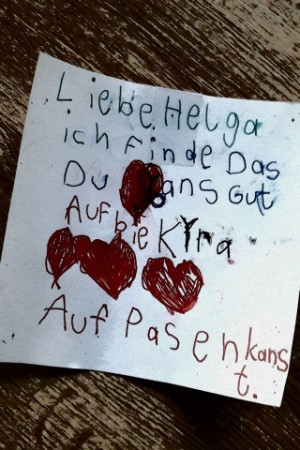 Liebe Helga
ich finde Das
Du Gans Gut
Auf bie Kira
Auf Pasen kans
t.